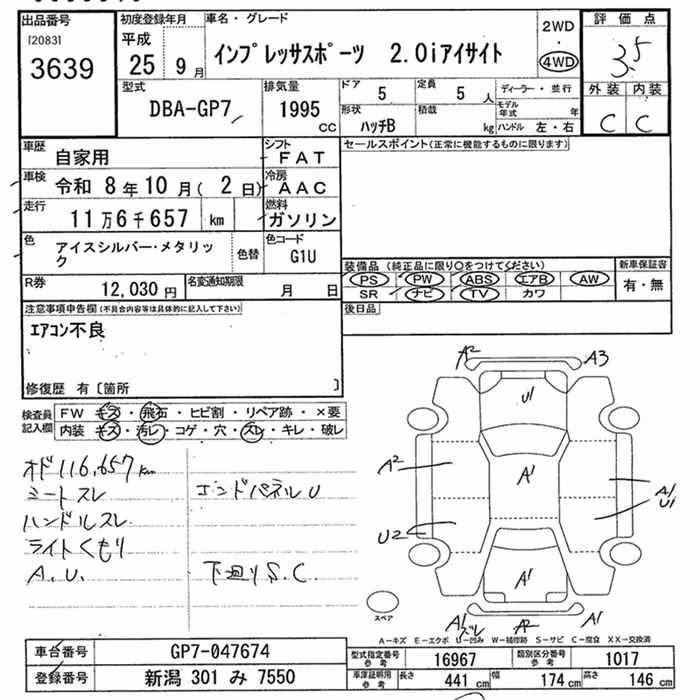 出品番号 初度登録年月 車名・グレード 2WD 評価点
[2083] 平成 インプレッサスポーツ 2.0iアイサイト 4WD 3.5
3639 25年9月
型式 排気量 ドア 5 定員 5人 ディーラー・並行 外装 内装
DBA-GP7 1995cc 形状 ハッチB 積載 kg モデル年式 年 C C
ハンドル 左・右
車歴 自家用 シフト FAT セールスポイント(正常に機能するものに限ります)
車検 令和 8年10月(2日) 冷房 AAC
走行 11万6千657 km 燃料 ガソリン
色 アイスシルバー・メタリック 色替 色コード G1U
装備品(純正品に限り〇をつけてください) 新車保証書
PS PW ABS エアB AW 有・無
SR ナビ TV カワ
R券 12,030円 名変通知期限 月 日
注意事項申告欄(不具合内容等は具体的に記入して下さい) 後日品
エアコン不良
修復歴 有〔箇所 〕
検査員記入欄 FW キズ・飛石・ヒビ割・リペア跡・×要
内装 キズ・汚レ・コゲ・穴・スレ・キレ・破レ
オド116,657km
ミートスレ エンドパネルU
ハンドルスレ
ライトくもり
A.U. 下廻りS.C.
A2 A3
U1
A2 A1 A1/U1
U2
A1
スペア
A1 ズレ A2 A1
A-キズ E-エクボ U-凹み W-補修跡 S-サビ C-腐食 XX-交換済
車台番号 GP7-047674 型式指定番号 参考 16967 類別区分番号 参考 1017
登録番号 新潟 301 み 7550 車庫証明用 参考 長さ 441cm 幅 174cm 高さ 146cm